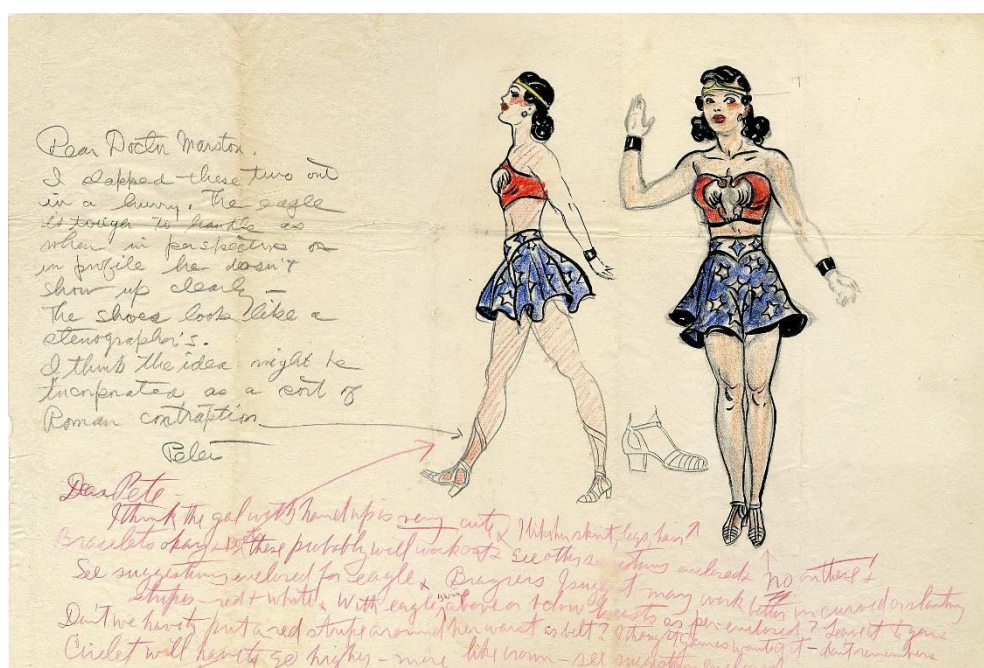 Dear Doctor Marston.
I slapped these two out
in a hurry. The eagle
is tough to handle as
when in perspective or
in profile he doesn't
show up clearly —
The shoes look like a
stenographer's.
I think the idea might be
incorporated as a sort of
Roman contraption
Peter
Dear Pete —
I think the gal with hand up is very cute & I like her skirt, legs, hair
Bracelets okay + boots these probably will work out & See other suggestions enclosed. No on these +
See suggestions enclosed for eagle & I suggest may work better in curved or slanting
stripes — red + white & With eagle's wings above or below breasts as per enclosed? Leave it to you.
Don't we have to put a red stripe around her waist as belt? I thought Gaines wanted it — don't remember
Circlet will have to go higher — more like crown — see suggestions enclosed